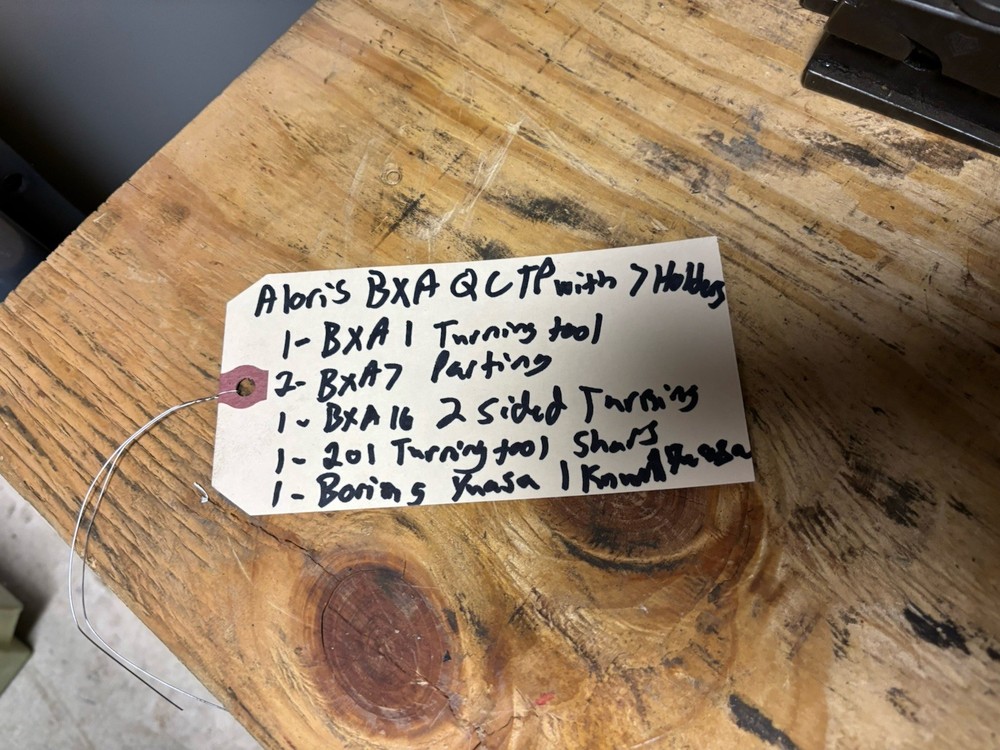 Aloris BXA QCTP with 7 Holders
1- BXA 1 Turning tool
2- BXA7 Parting
1- BXA16 2 Sided Turning
1- 201 Turning tool Shars
1- Boring Yuasa 1 Knurll Yuasa